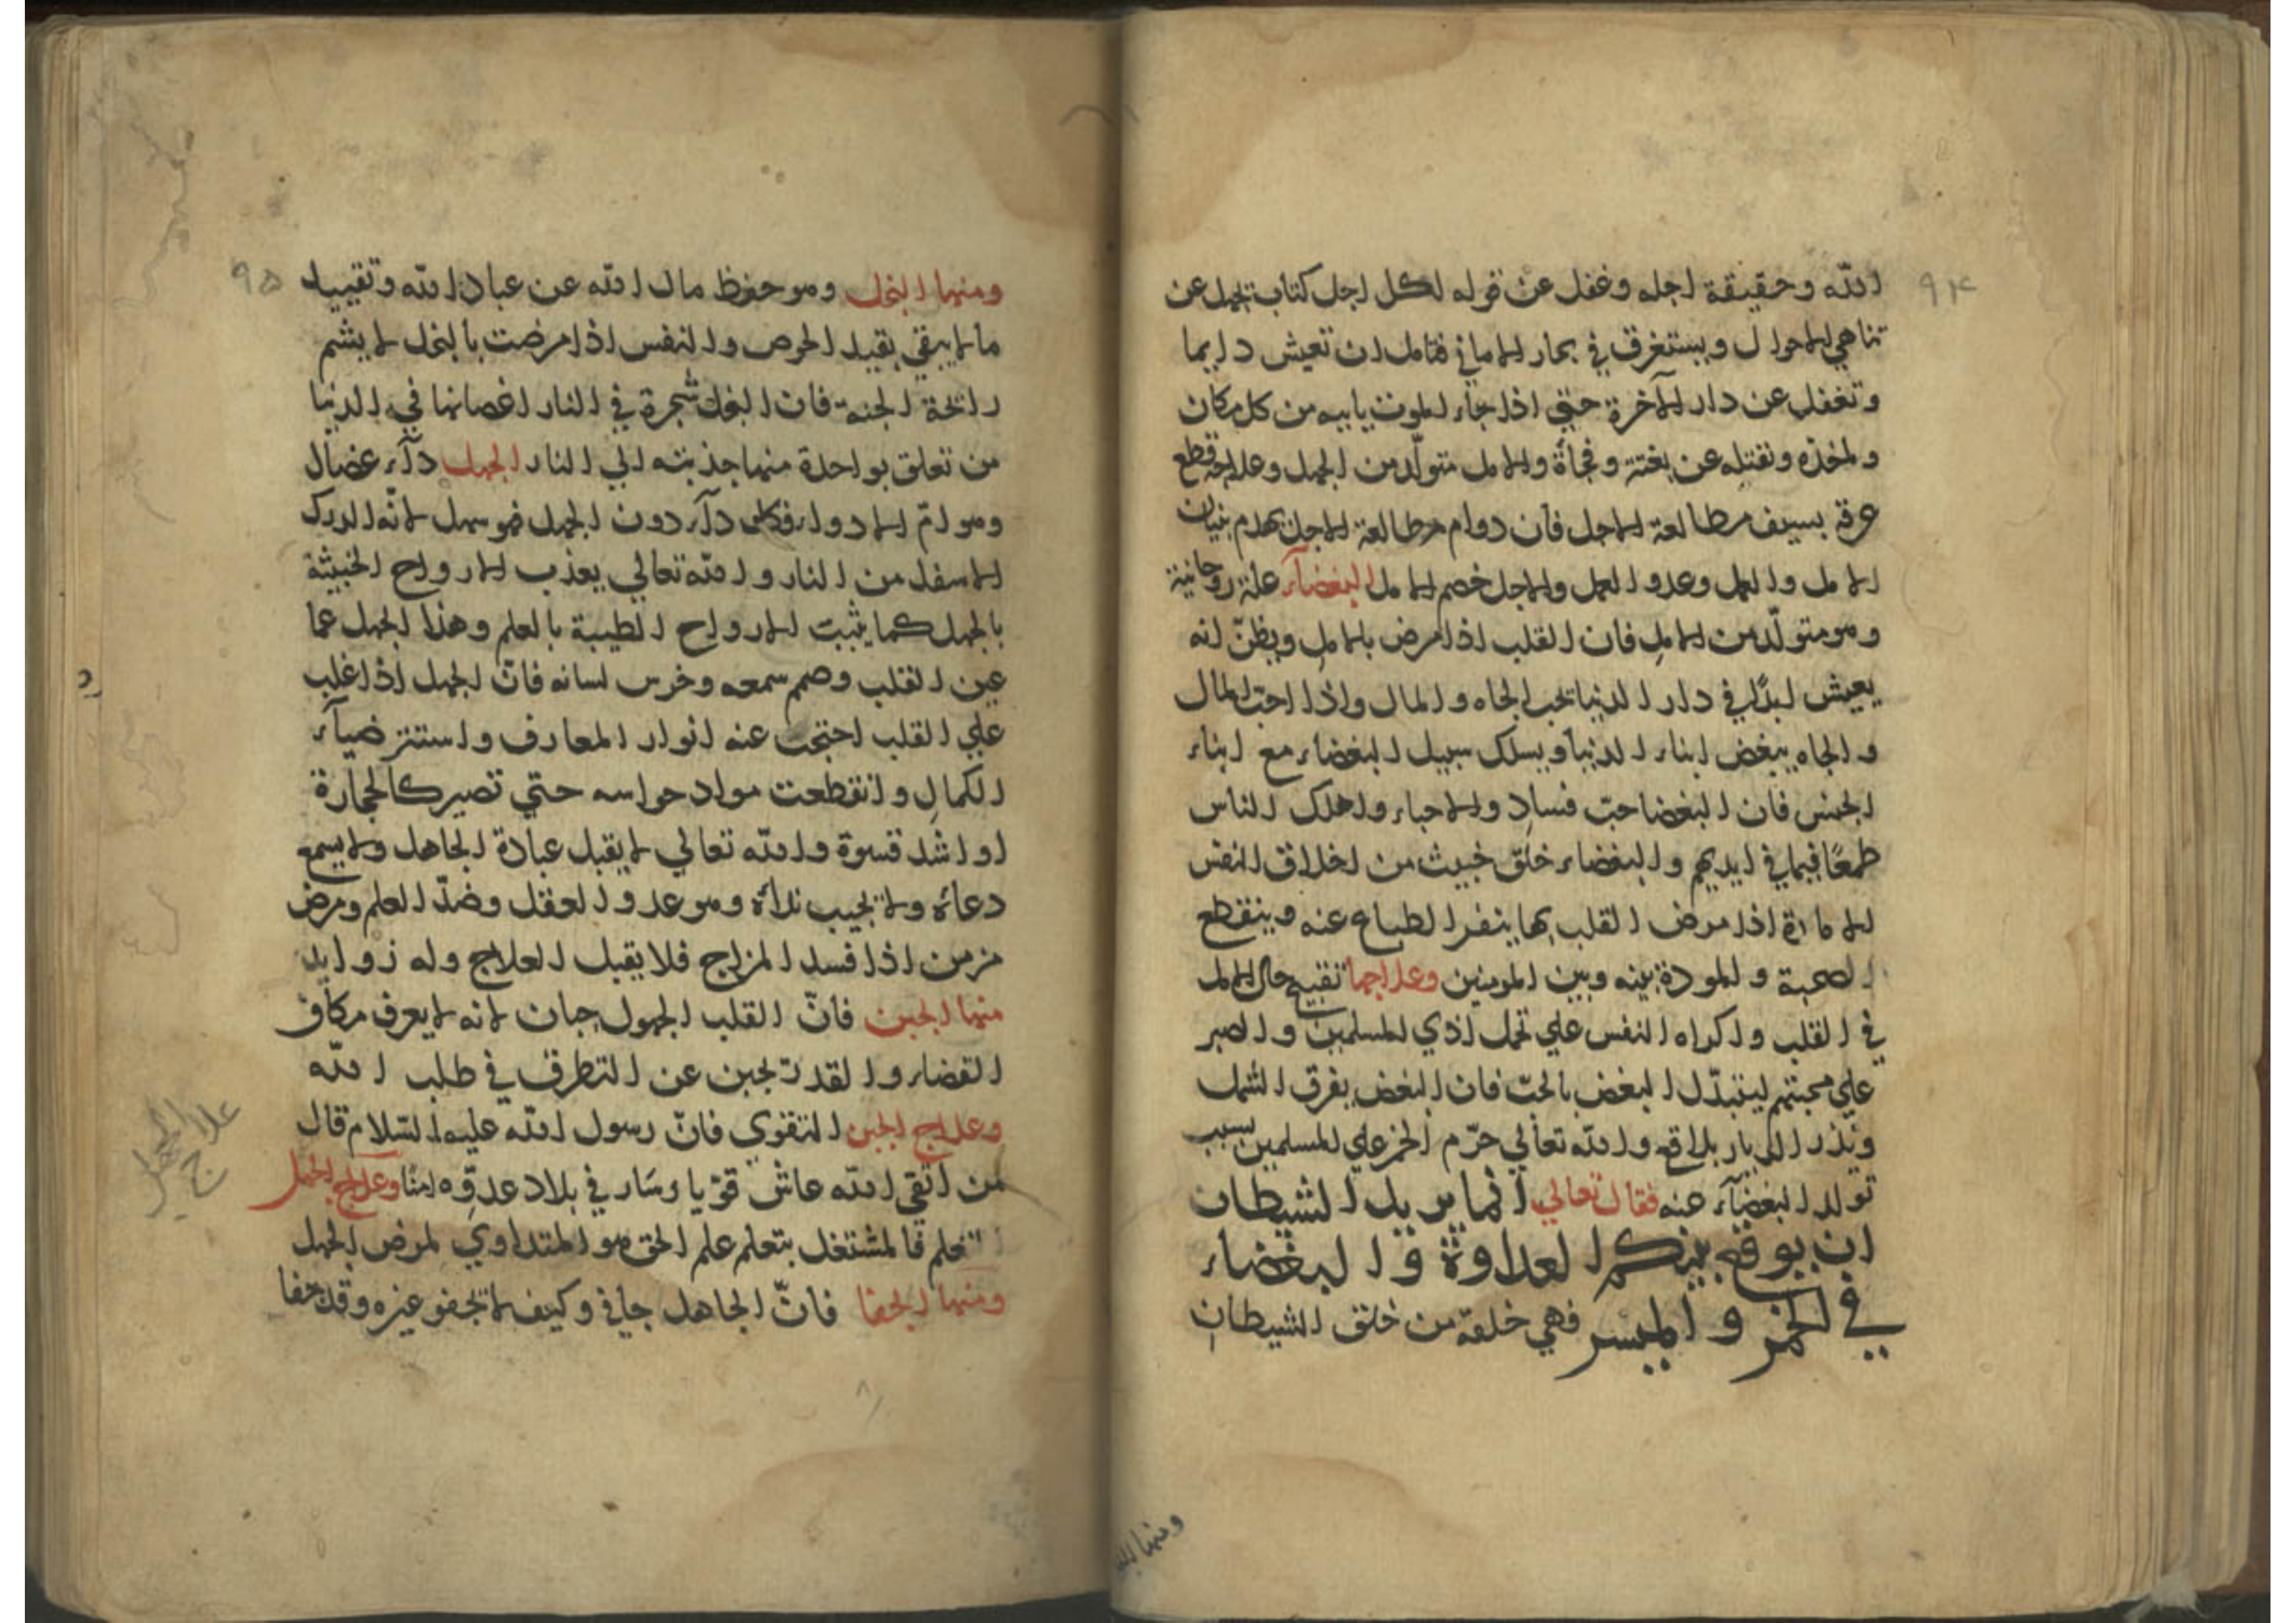 ٩٤
الله وحقيقة اجله وغفل عن قوله لكل اجل كتاب تجهل عن
تناهي الاحوال ويستغرق في بحار الاماني فتامل ان تعيش دايما
وتغفل عن دار الآخرة حتي اذا جاء الموت ياتيه من كل مكان
وتقتله عن بغتة وفجأة والامل متولّد من الجهل وعلاجه قطع
عرقه بسيف مطالعة الاجل فان دوام مطالعة الاجل يهدم بنيان
الامل والعمل وعدو العمل والاجل خصم الامل البغضآء علة روحانية
وهو متولّد من الامل فان القلب اذا مرض بالامل ويظنّ انه
يعيش ابدًا في دار الدنيا تحب الجاه والمال واذا احبّ المال
والجاه يبغض ابناء الدنيا ويسلك سبيل البغضاء مع ابناء
الجنس فان البغضا حبّ فساد والاحباء واهلك الناس
طمعًا فيما في ايديهم والبغضاء خلق خبيث من اخلاق النفس
الامارة اذا مرض القلب بها ينفر الطباع عنه وينقطع
الصحبة والمودة بينه وبين المومنين وعلاجها تقبيح حال الامل
في القلب واكراه النفس علي تحمل اذي المسلمين والصبر
علي محبتهم ليتبدّل البغض بالحبّ فان البغض يفرق الشمل
ويذر الديار بلاقع والله تعالي حرّم الخمر علي المسلمين بسبب
تولد البغضآء عنه فقال تعالي انما يريد الشيطان
ان يوقع بينكم العداوة و البغضاء
في الخمر و الميسر فهي خلقة من خلق الشيطان
ومنها البخل
٩٥
ومنها البخل وهو حفظ مال الله عن عباد الله وتقييد
ما لا يبقي بقيد الحرص والنفس اذا مرضت بالبخل لا يشم
رائحة الجنة فان البخل شجرة في النار اغصانها في الدنيا
من تعلق بواحدة منها جذبته الي النار الجهل دآء عضال
وهو امّ الادواء فكل دآء دون الجهل فهو سهل لانّه الدرك
الاسفل من النار والله تعالي يعذب الارواح الخبيثة
بالجهل كما يثبت الارواح الطيبة بالعلم وهذا الجهل عما
عين القلب وصمم سمعه وخرس لسانه فانّ الجهل اذا غلب
علي القلب احتجت عنه انوار المعارف واستتر ضيآء
الكمال وانقطعت مواد حواسه حتي تصير كالحجارة
او اشد قسوة والله تعالي لا يقبل عبادة الجاهل ولا يسمع
دعاءه ولا يجيب نداءه وهو عدو العقل وضدّ العلم ومرض
مزمن اذا فسد المزاج فلا يقبل العلاج وله زوايد
منها الجبن فانّ القلب الجهول جبان لانه لا يعرف مكان
القضاء والقدر تجبن عن التطرق في طلب الله
وعلاج الجبن التقوي فانّ رسول الله عليه السّلام قال
من اتقي الله عاش قويا وسار في بلاد عدوّه امنًا وعلاج الجهل
التعلم فالمشتغل بتعلم علم الحق هو المتداوي لمرض الجهل
ومنها الجفا فانّ الجاهل جافي وكيف لا تجفو غيره وقد جفا
علاج الجهل